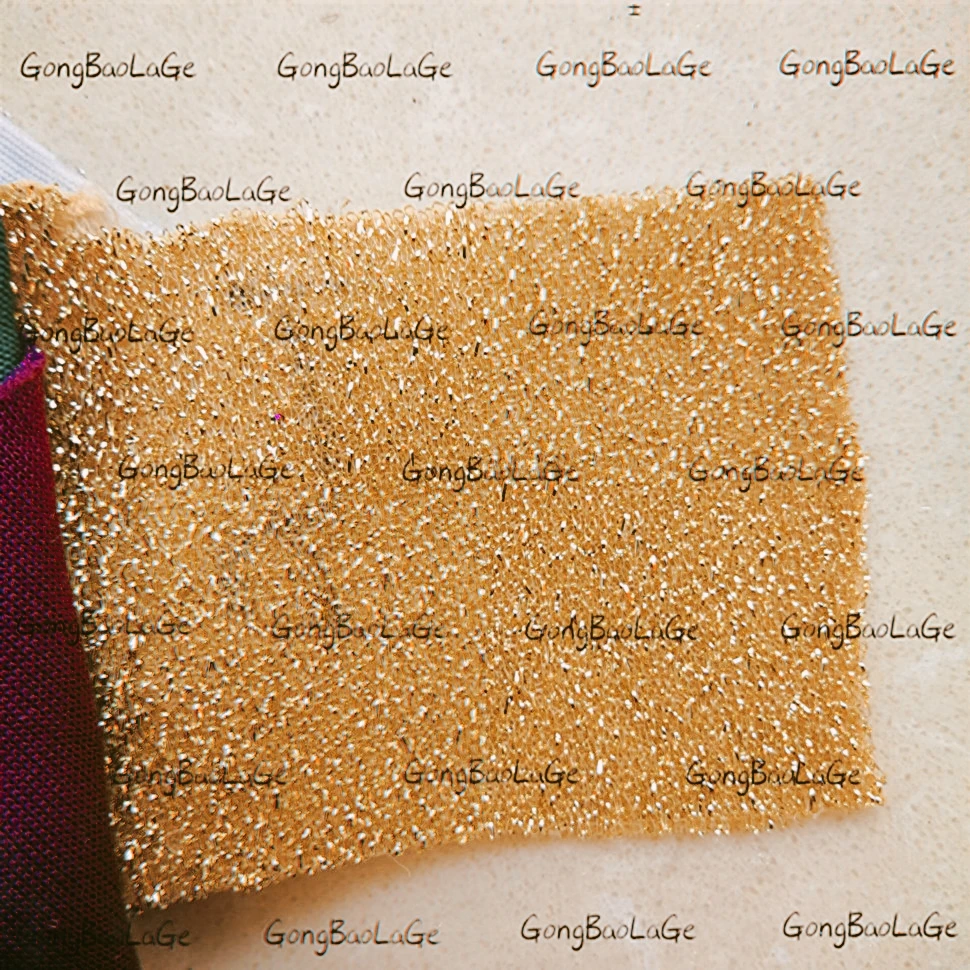 GongBaoLaGe GongBaoLaGe GongBaoLaGe GongBaoLaGe
GongBaoLaGe GongBaoLaGe GongBaoLaGe
GongBaoLaGe GongBaoLaGe GongBaoLaGe GongBaoLaGe
GongBaoLaGe GongBaoLaGe GongBaoLaGe
GongBaoLaGe GongBaoLaGe GongBaoLaGe GongBaoLaGe
GongBaoLaGe GongBaoLaGe GongBaoLaGe
GongBaoLaGe GongBaoLaGe GongBaoLaGe GongBaoLaGe